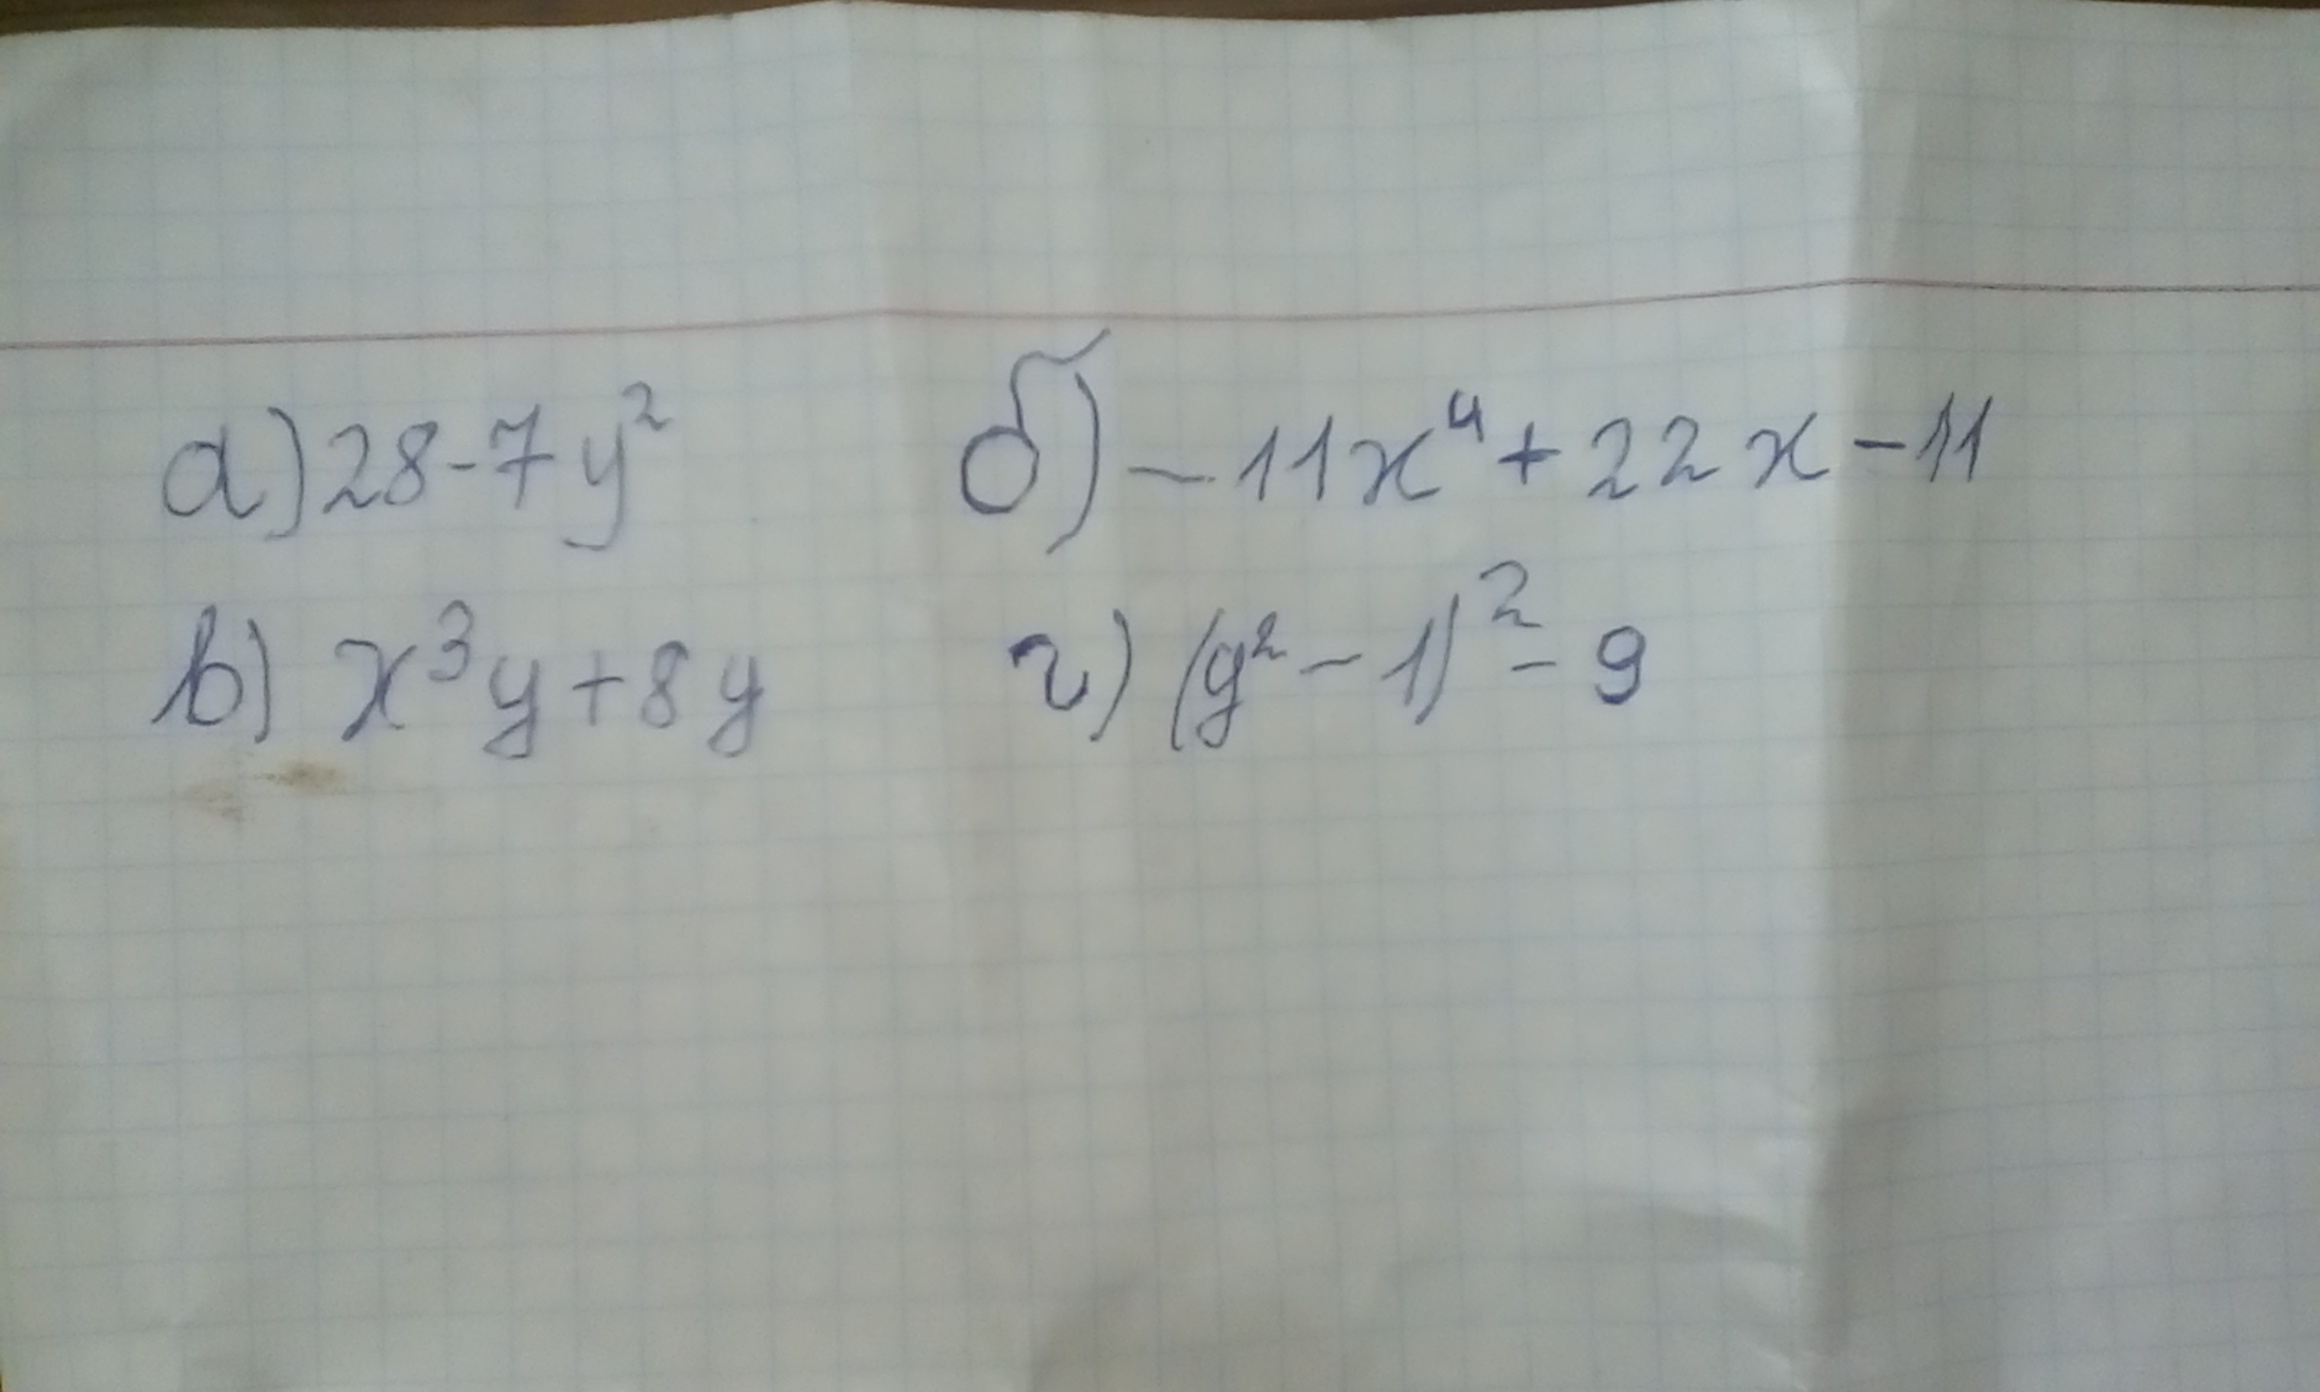 а) 28-7y² б) -11x⁴+22x-11
в) x³y+8y г) (y²-1)²-9